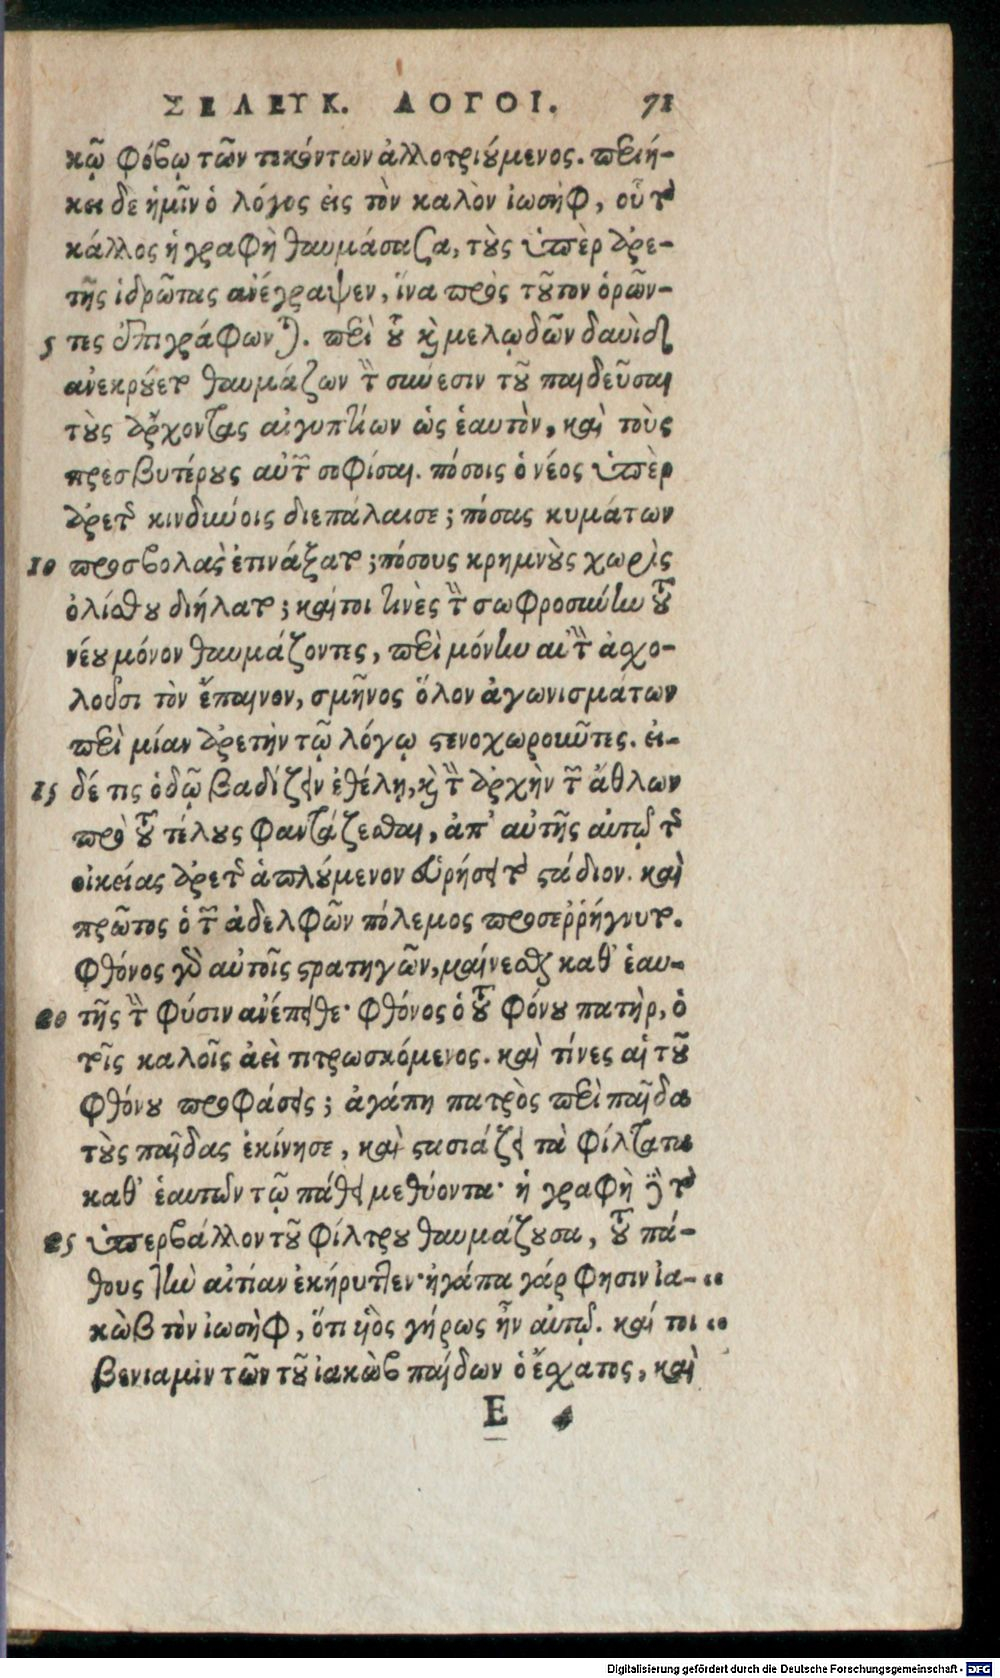 ΣΕΛΕΥΚ. ΛΟΓΟΙ. 71
κῷ φόβῳ τῶν τεκόντων ἀλλοτριούμενος. περιή-
κει δὲ ἡμῖν ὁ λόγος εἰς τὸν καλὸν ἰωσὴφ, οὗ τὸ
κάλλος ἡ γραφὴ θαυμάσασα, τοὺς ὑπὲρ ἀρε-
τῆς ἱδρῶτας ἀνέγραψεν, ἵνα πρὸς τοῦτον ὁρῶν-
5 τες ἐπιγράφωνται. περὶ οὗ καὶ μελῳδῶν δαυὶδ
ἀνεκρούετο θαυμάζων τὴν σύνεσιν τοῦ παιδεῦσαι
τοὺς ἄρχοντας αἰγυπτίων ὡς ἑαυτὸν, καὶ τοὺς
πρεσβυτέρους αὐτῶν σοφίσαι. πόσοις ὁ νέος ὑπὲρ
ἀρετῆς κινδύνοις διεπάλαισε; πόσας κυμάτων
10 προσβολὰς ἐτινάξατο; πόσους κρημνοὺς χωρὶς
ὀλίσθου διήλατο; καίτοι τινὲς τὴν σωφροσύνην τοῦ
νέου μόνον θαυμάζοντες, περὶ μόνην αὐτὴν ἀσχο-
λοῦσι τὸν ἔπαινον, σμῆνος ὅλον ἀγωνισμάτων
περὶ μίαν ἀρετὴν τῷ λόγῳ στενοχωροῦντες. εἰ-
15 δέ τις ὁδῷ βαδίζειν ἐθέλῃ, καὶ τὴν ἀρχὴν τῶν ἄθλων
πρὸ τοῦ τέλους φαντάζεσθαι, ἀπ' αὐτῆς αὐτῷ τῆς
οἰκείας ἀρετῆς ἁπλούμενον εὑρήσει τὸ στάδιον. καὶ
πρῶτος ὁ τῶν ἀδελφῶν πόλεμος προσερρήγνυτο.
φθόνος γὰρ αὐτοῖς στρατηγῶν, μαίνεσθαι καθ' ἑαυ-
20 τῆς τὴν φύσιν ἀνέπειθε· φθόνος ὁ τοῦ φόνου πατὴρ, ὁ
τοῖς καλοῖς ἀεὶ τιτρωσκόμενος. καὶ τίνες αἱ τοῦ
φθόνου προφάσεις; ἀγάπη πατρὸς περὶ παῖδα
τοὺς παῖδας ἐκίνησε, καὶ στασιάζει τὰ φίλτατα
καθ' ἑαυτῶν τῷ πάθει μεθύοντα· ἡ γραφὴ γὰρ τὸ
25 ὑπερβάλλον τοῦ φίλτρου θαυμάζουσα, τοῦ πά-
θους τὴν αἰτίαν ἐκήρυττεν· ἠγάπα γάρ φησιν ἰα- "
κὼβ τὸν ἰωσὴφ, ὅτι υἱὸς γήρως ἦν αὐτῷ. καί τοι "
βενιαμὶν τῶν τοῦ ἰακὼβ παίδων ὁ ἔσχατος, καὶ
E
Digitalisierung gefördert durch die Deutsche Forschungsgemeinschaft - DFG